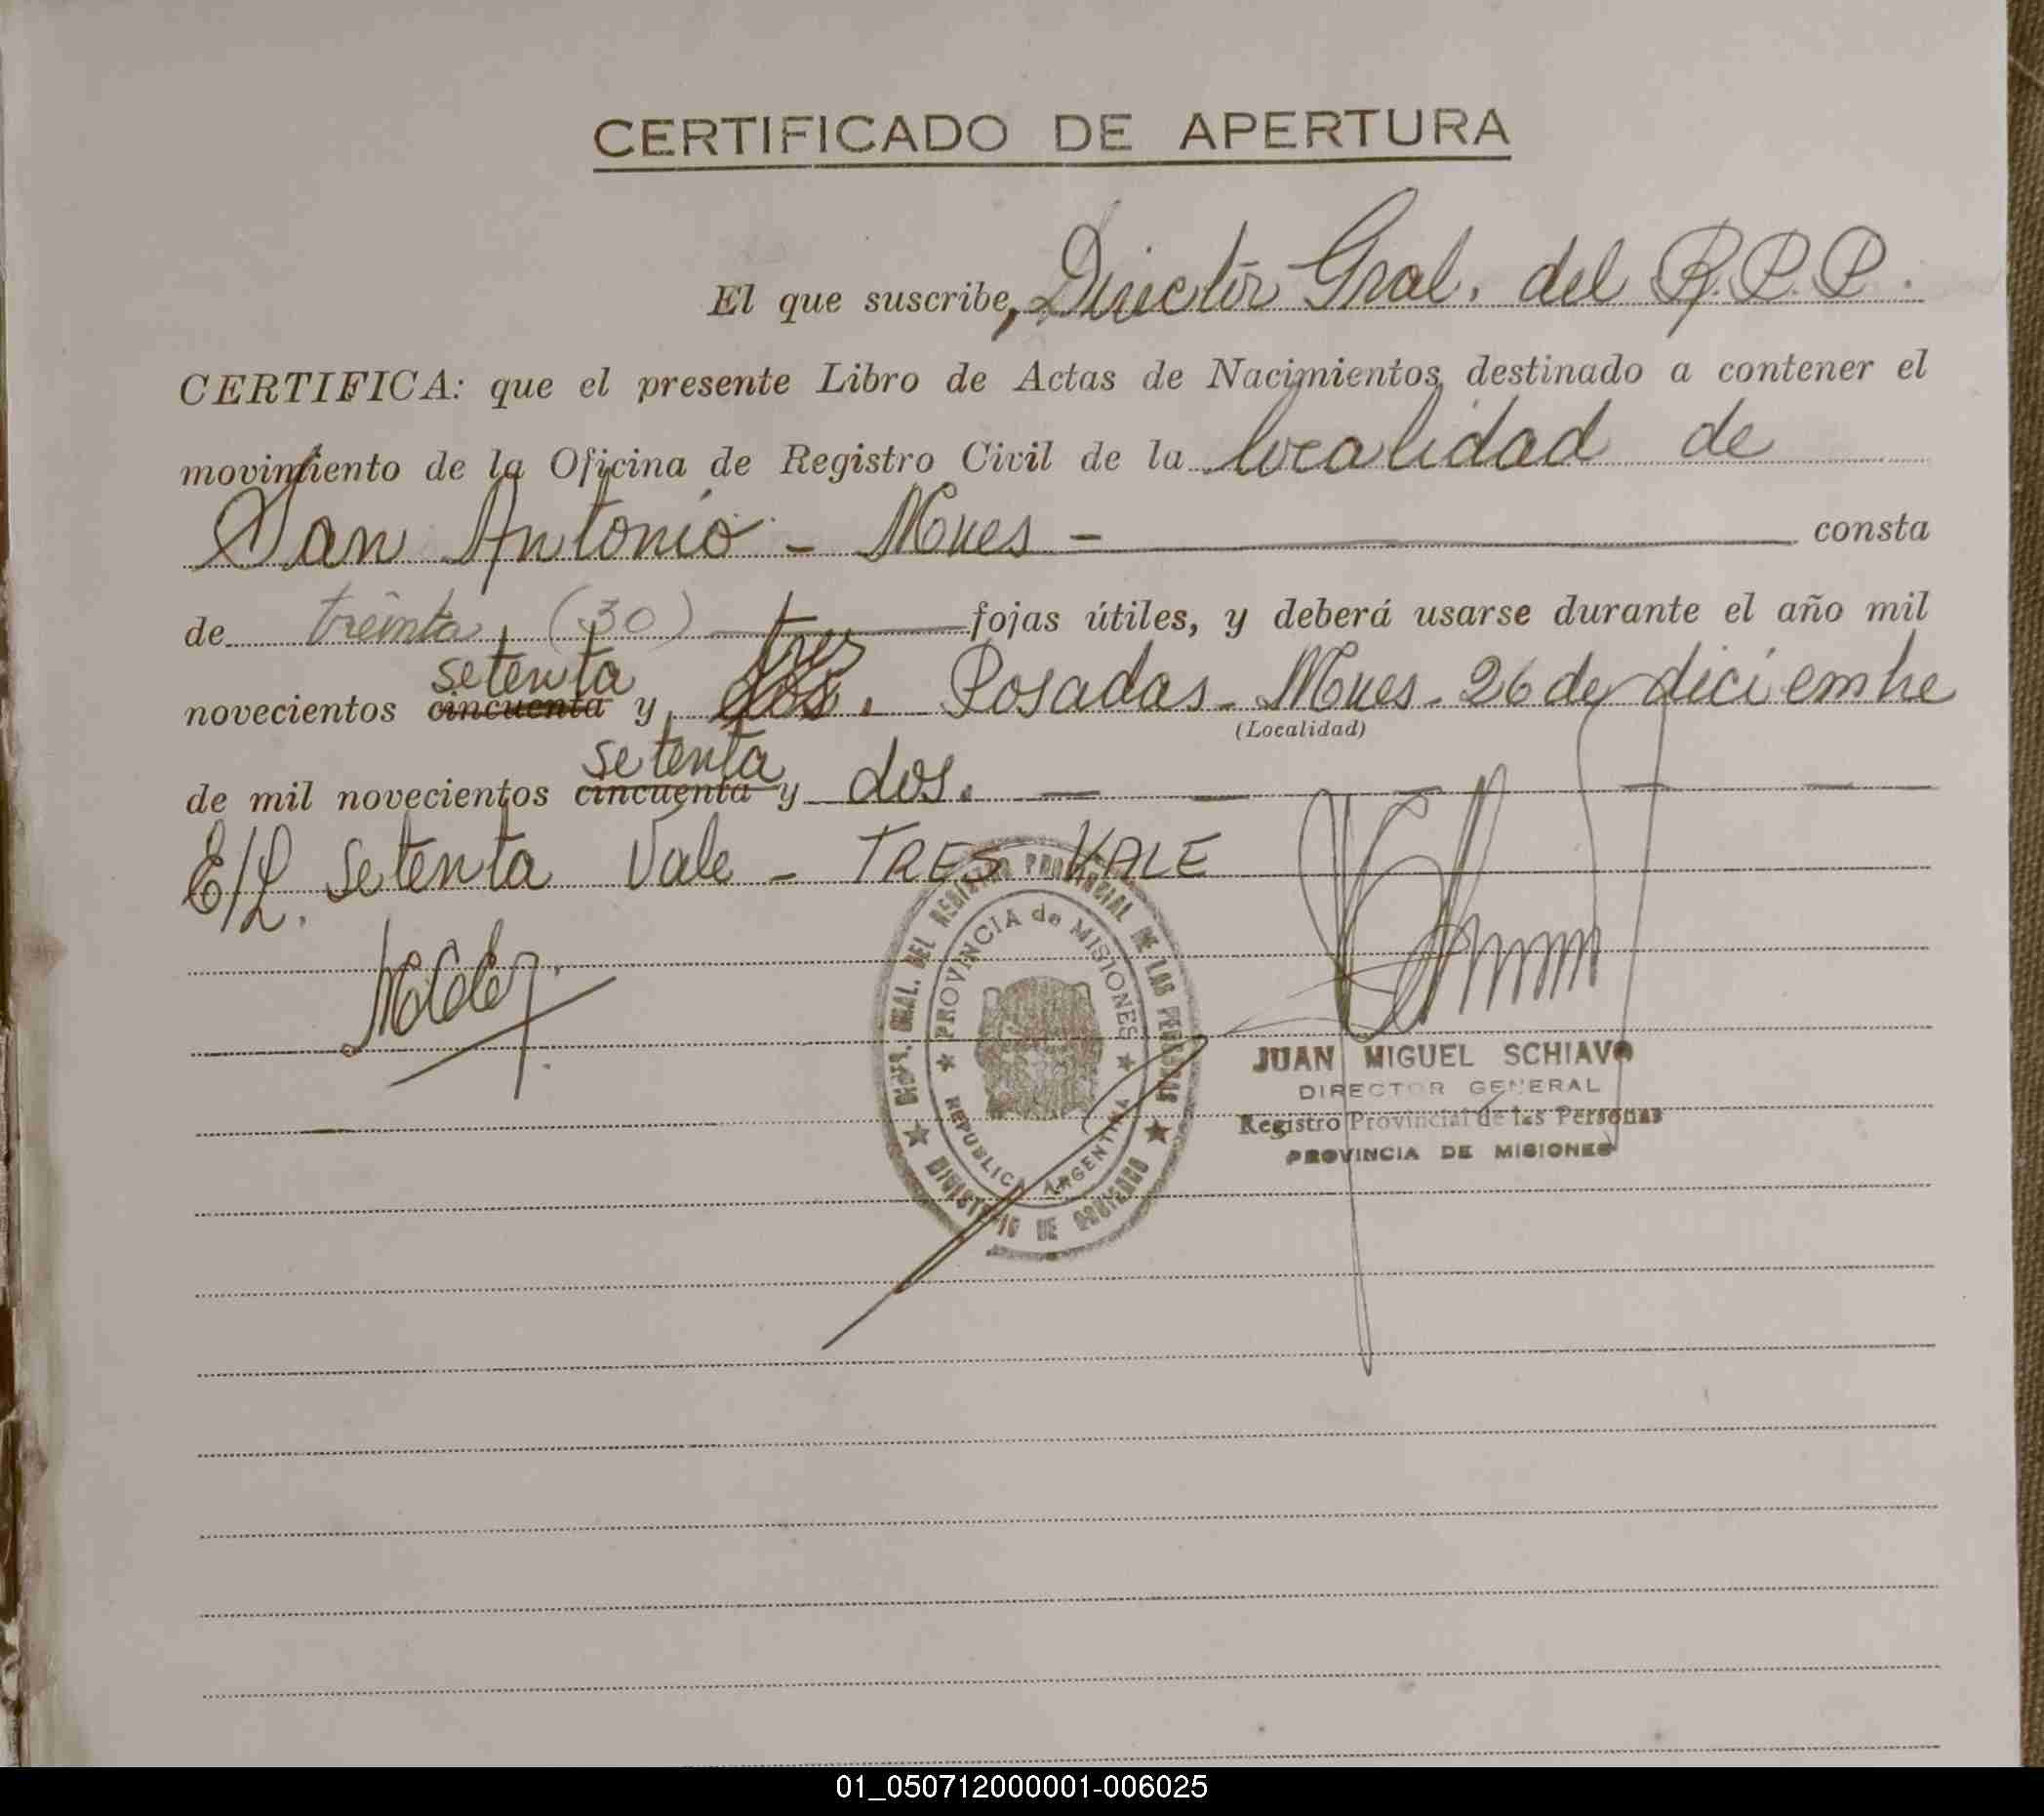 CERTIFICADO DE APERTURA
El que suscribe, Director Gral. del R.P.P.
CERTIFICA: que el presente Libro de Actas de Nacimientos, destinado a contener el
movimiento de la Oficina de Registro Civil de la localidad de
San Antonio - Mnes - consta
de treinta (30) fojas útiles, y deberá usarse durante el año mil
setenta tres
novecientos cincuenta y dos. Posadas - Mnes - 26 de diciembre
(Localidad)
setenta
de mil novecientos cincuenta y dos.
E/L. setenta Vale - TRES VALE
DION. GRAL. DEL REGISTRO PROVINCIAL DE LAS PERSONAS
PROVINCIA de MISIONES
REPUBLICA ARGENTINA
MINISTERIO DE GOBIERNO
JUAN MIGUEL SCHIAVO
DIRECTOR GENERAL
Registro Provincial de las Personas
PROVINCIA DE MISIONES
01_050712000001-006025